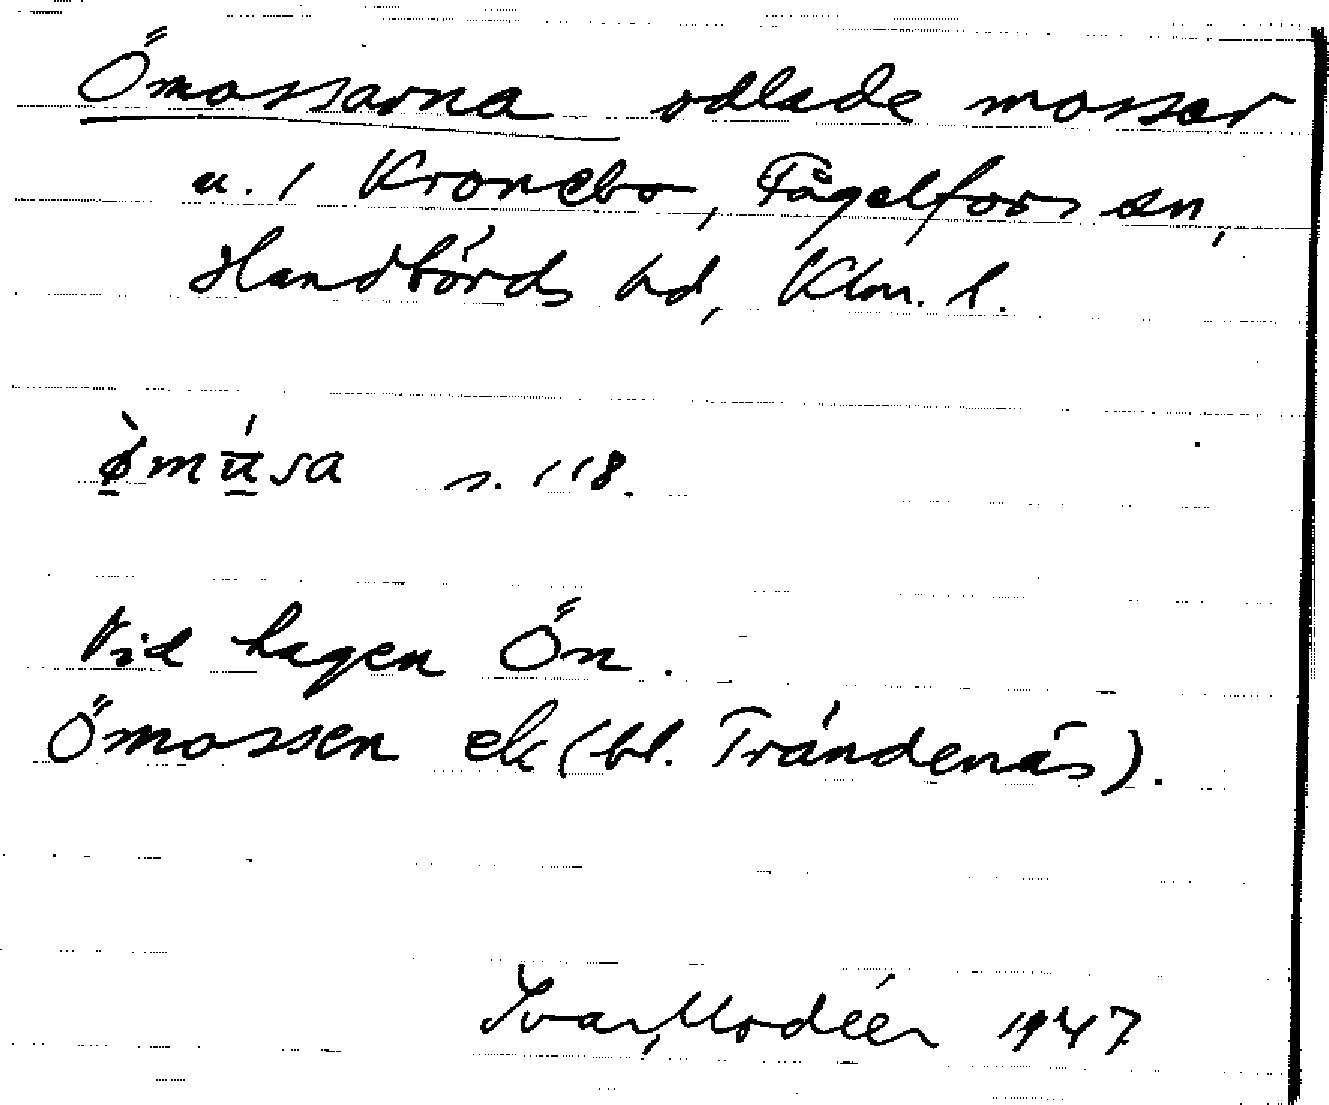 Ömossarna odlade mossar
u. 1 Kronebo, Fågelfors sn,
Handbörds hd, Klm. l.
ø̀mu̇́sa s. 118.
Vid hagen Ön.
Ömossen ek (bl. Trändenäs).
Ivar Modéer 1947